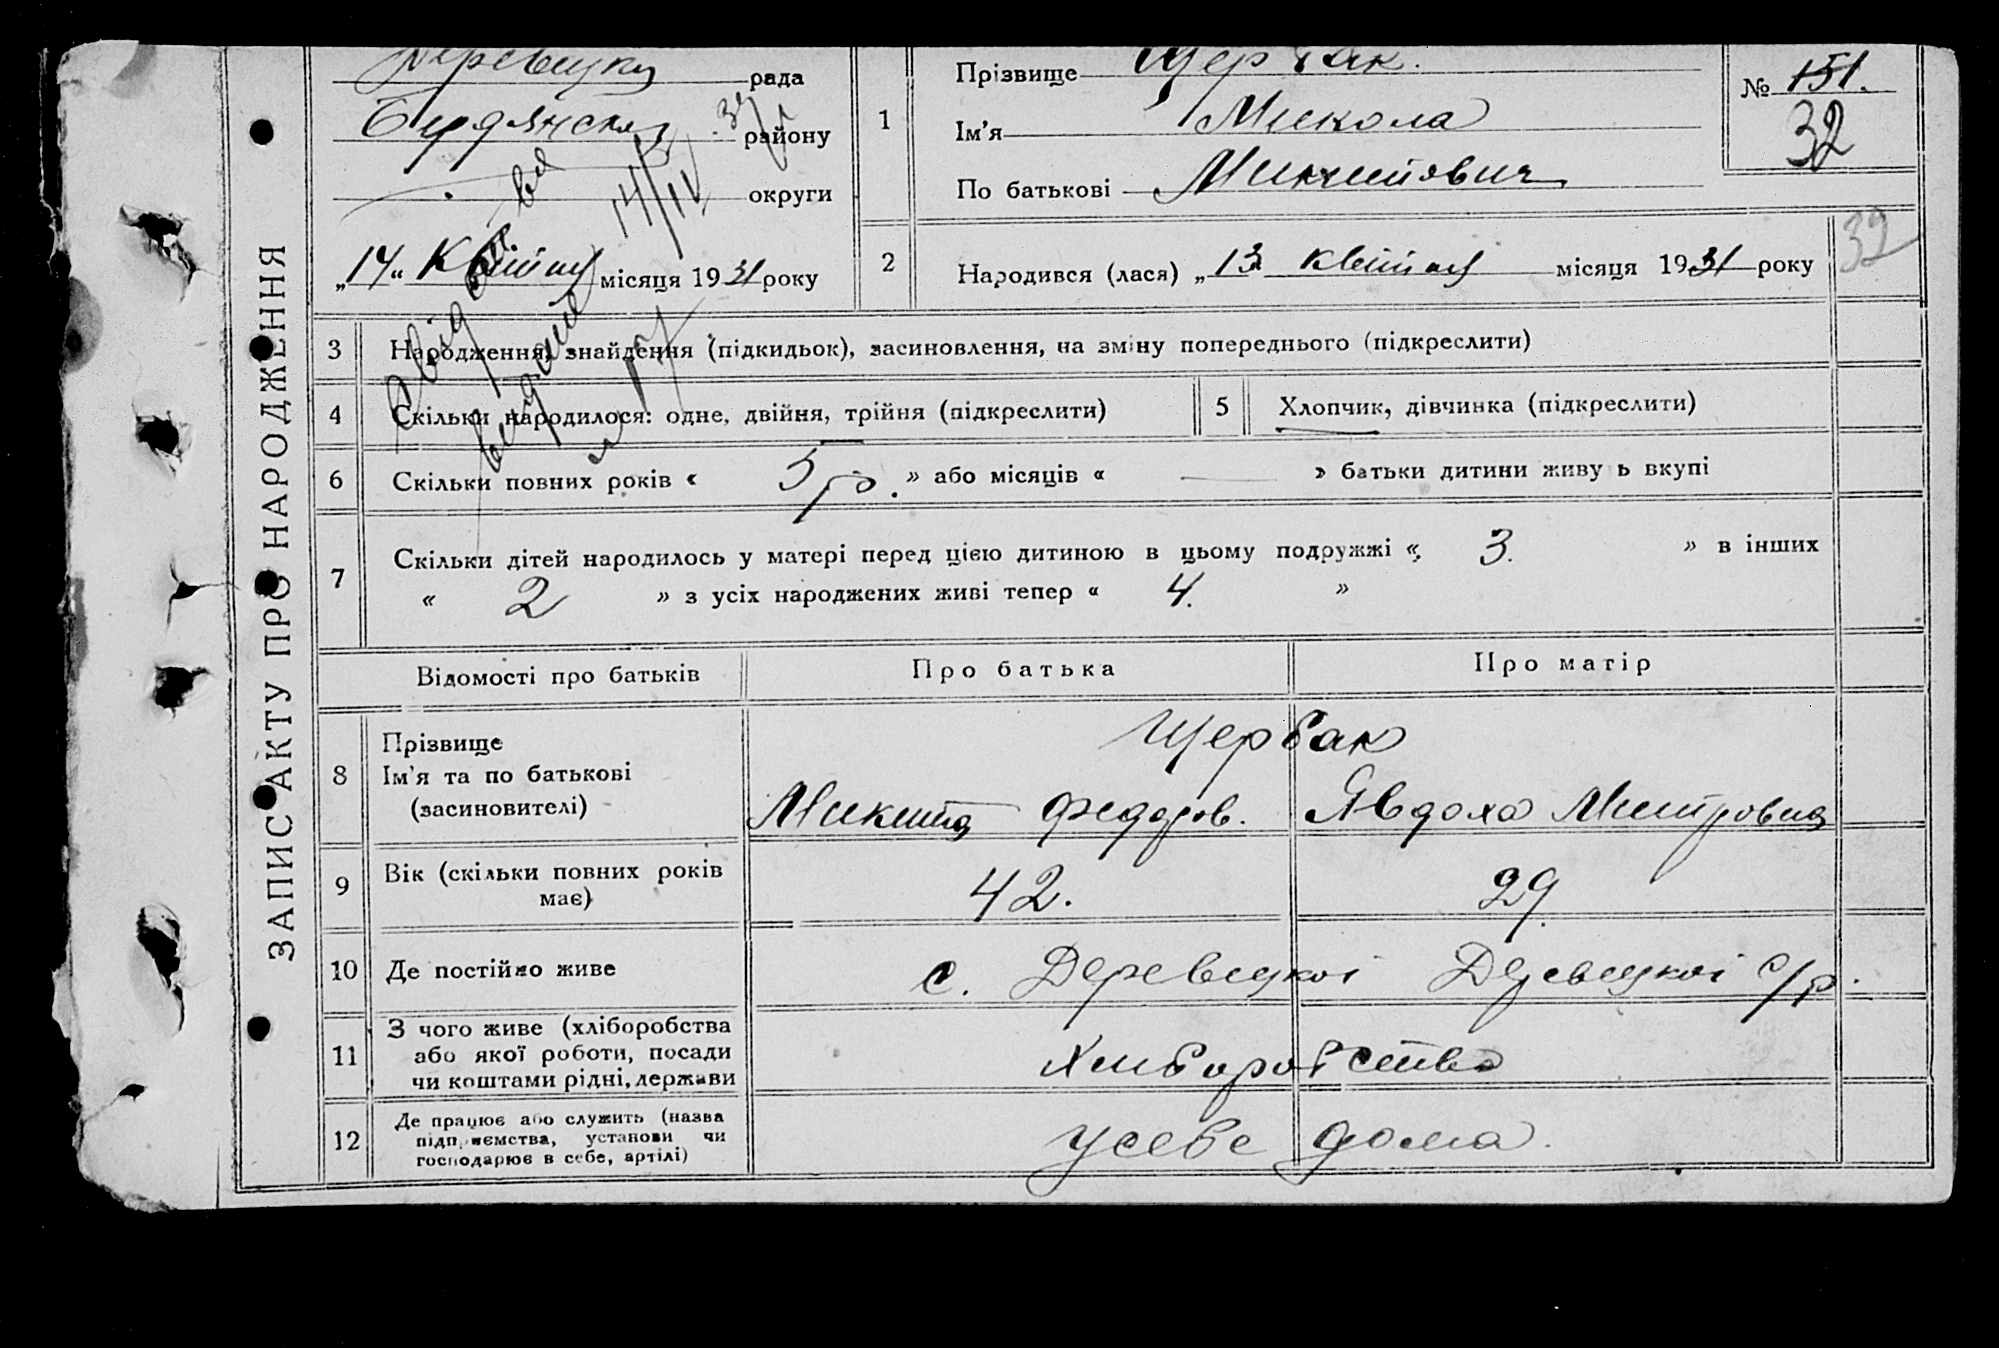 ЗАПИС АКТУ ПРО НАРОДЖЕННЯ
Деревецка рада
Бердянська району
округи
„14“ Квітня місяця 1931 року
Свідоцтво
видано
14/IV
1 Прізвище Щербак.
Ім’я Микола
По батькові Микитович
№ 151.
32
2 Народився (лася) „13 квітня місяця 1931 року
32
3 Народження, знайдення (підкидьок), засиновлення, на зміну попереднього (підкреслити)
4 Скільки народилося: одне, двійня, трійня (підкреслити)
5 Хлопчик, дівчинка (підкреслити)
6 Скільки повних років « 5 р. » або місяців « — » батьки дитини живу ь вкупі
7 Скільки дітей народилось у матері перед цією дитиною в цьому подружжі « 3. » в інших
« 2 » з усіх народжених живі тепер « 4. »
Відомості про батьків Про батька Про матір
8 Прізвище
Ім’я та по батькові
(засиновителі)
Щербак
Микита Федоров. Явдоха Митровна
9 Вік (скільки повних років
має)
42. 29.
10 Де постійно живе с. Деревецкої Деревецкої с/р.
11 З чого живе (хліборобства
або якої роботи, посади
чи коштами рідні, держави
Хлиборобство
12 Де працює або служить (назва
підприємства, установи чи
господарює в себе, артілі)
усебе дома.